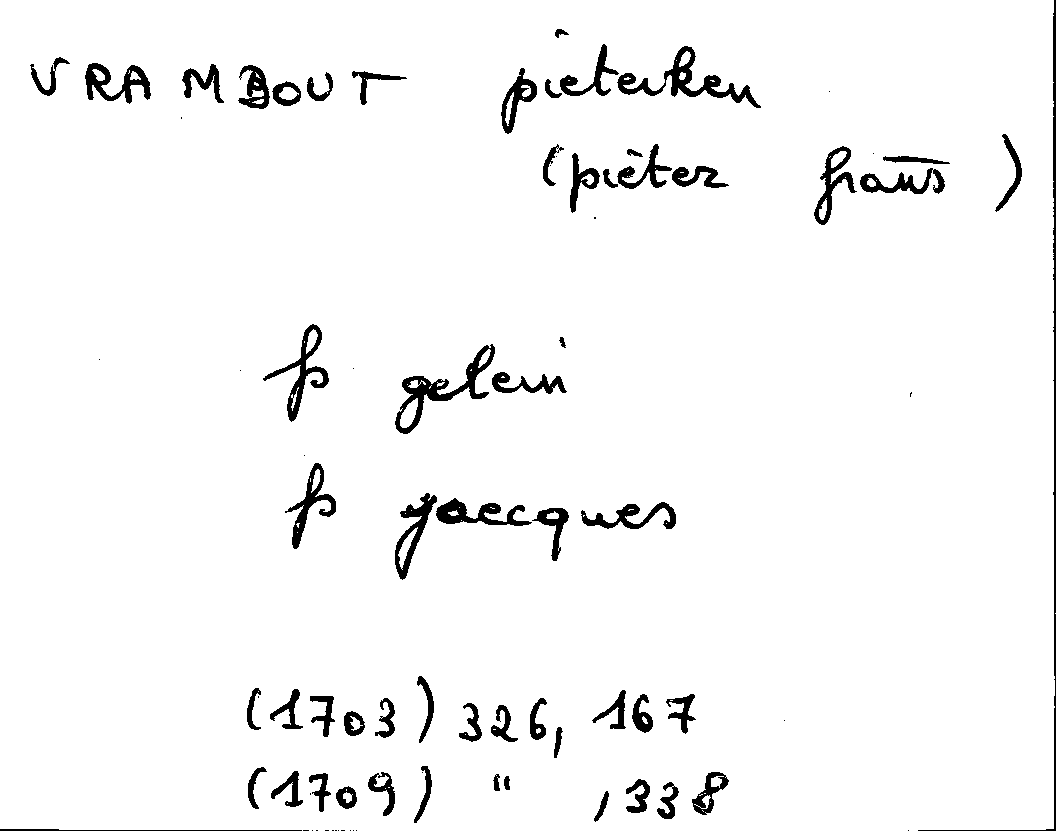 VRAMBOUT pieterken
(pieter frans)
fs gelein
fs jaecques
(1703) 326, 167
(1709) " , 338